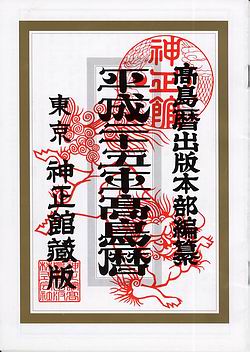 高島暦出版本部編纂
神正館
平成二十五年高島暦
東京 神正館蔵版